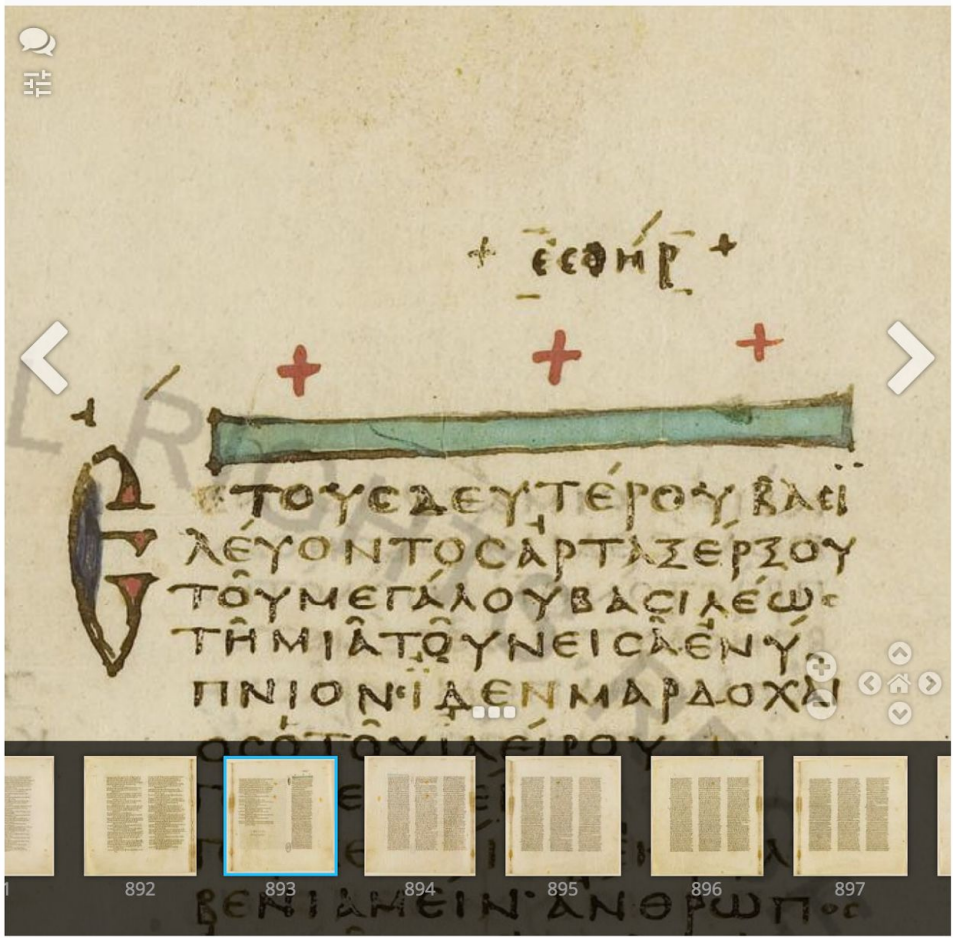 + ἐσθήρ +
ἘΤΟΥΣΔΕΥΤΈΡΟΥΒΑΣΪ
ΛΈΥΟΝΤΟΣἈΡΤΑΞΈΡΞΟΥ
ΤΟῦΜΕΓΆΛΟΥΒΑΣΙΛΈΩΣ
ΤῆΜΙᾶΤΟῦΝΕΙΣᾶἘΝΎ
ΠΝΙΟΝ·ΪΔΕΝΜΑΡΔΟΧΑΙ
ΟΣὉΤΟῦΙΑΕΊΡΟΥ
ΒΕΝΙΑΜΕΙΝ·ἈΝΘΡΩΠΟΣ
L RIGHTS RE
892 893 894 895 896 897